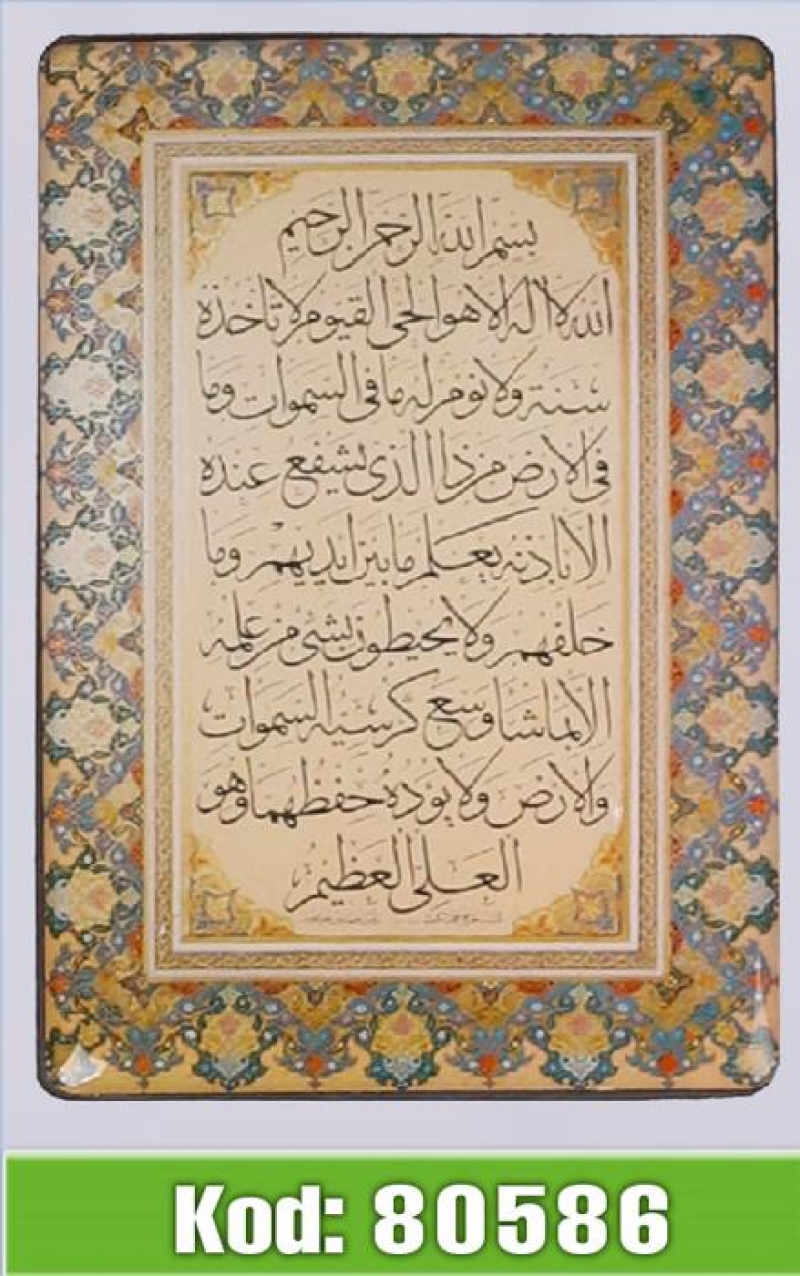 بسم الله الرحمن الرحيم
الله لا اله الا هو الحى القيوم لا تأخذه
سنة ولا نوم له ما فى السموات وما
فى الارض من ذا الذى يشفع عنده
الا باذنه يعلم ما بين ايديهم وما
خلفهم ولا يحيطون بشئ من علمه
الا بما شا وسع كرسيه السموات
والارض ولا يؤده حفظهما وهو
العلى العظيم
Kod: 80586